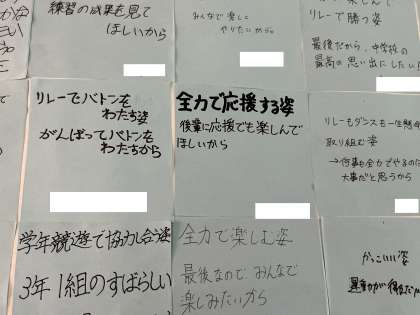 練習の成果を見て
ほしいから
みんなで楽しく
やりたいから。
リレーで勝つ姿
最後だから、中学校の
最高の思い出にしたい
リレーでバトンを
わたす姿
がんばってバトンを
わたすから
全力で応援する姿
後輩に応援でも楽しんで
ほしいから
リレーもダンスも一生懸命
取り組む姿
→何事も全力でやるのが
大事だと思うから
学年競遊で協力し合う姿
3年1組のすばらしい
全力で楽しむ姿
最後なので、みんなで
楽しみたいから
かっこいい姿